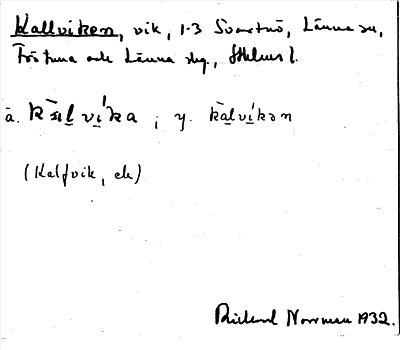 Kallviken, vik, 1-3 Svartnö, Länna sn,
Frötuna och Länna skg., Sthlms l.
ä. kālvi̱ka ; y. kālvi̱kən
(Kalfvik, ek)
Rickard Norrman 1932.